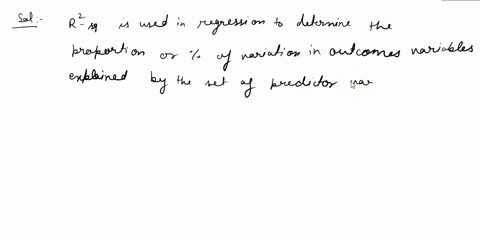 Sol:- R²-sq is used in regression to determine the
proportion or % of variation in outcomes variables
explained by the set of predictor var